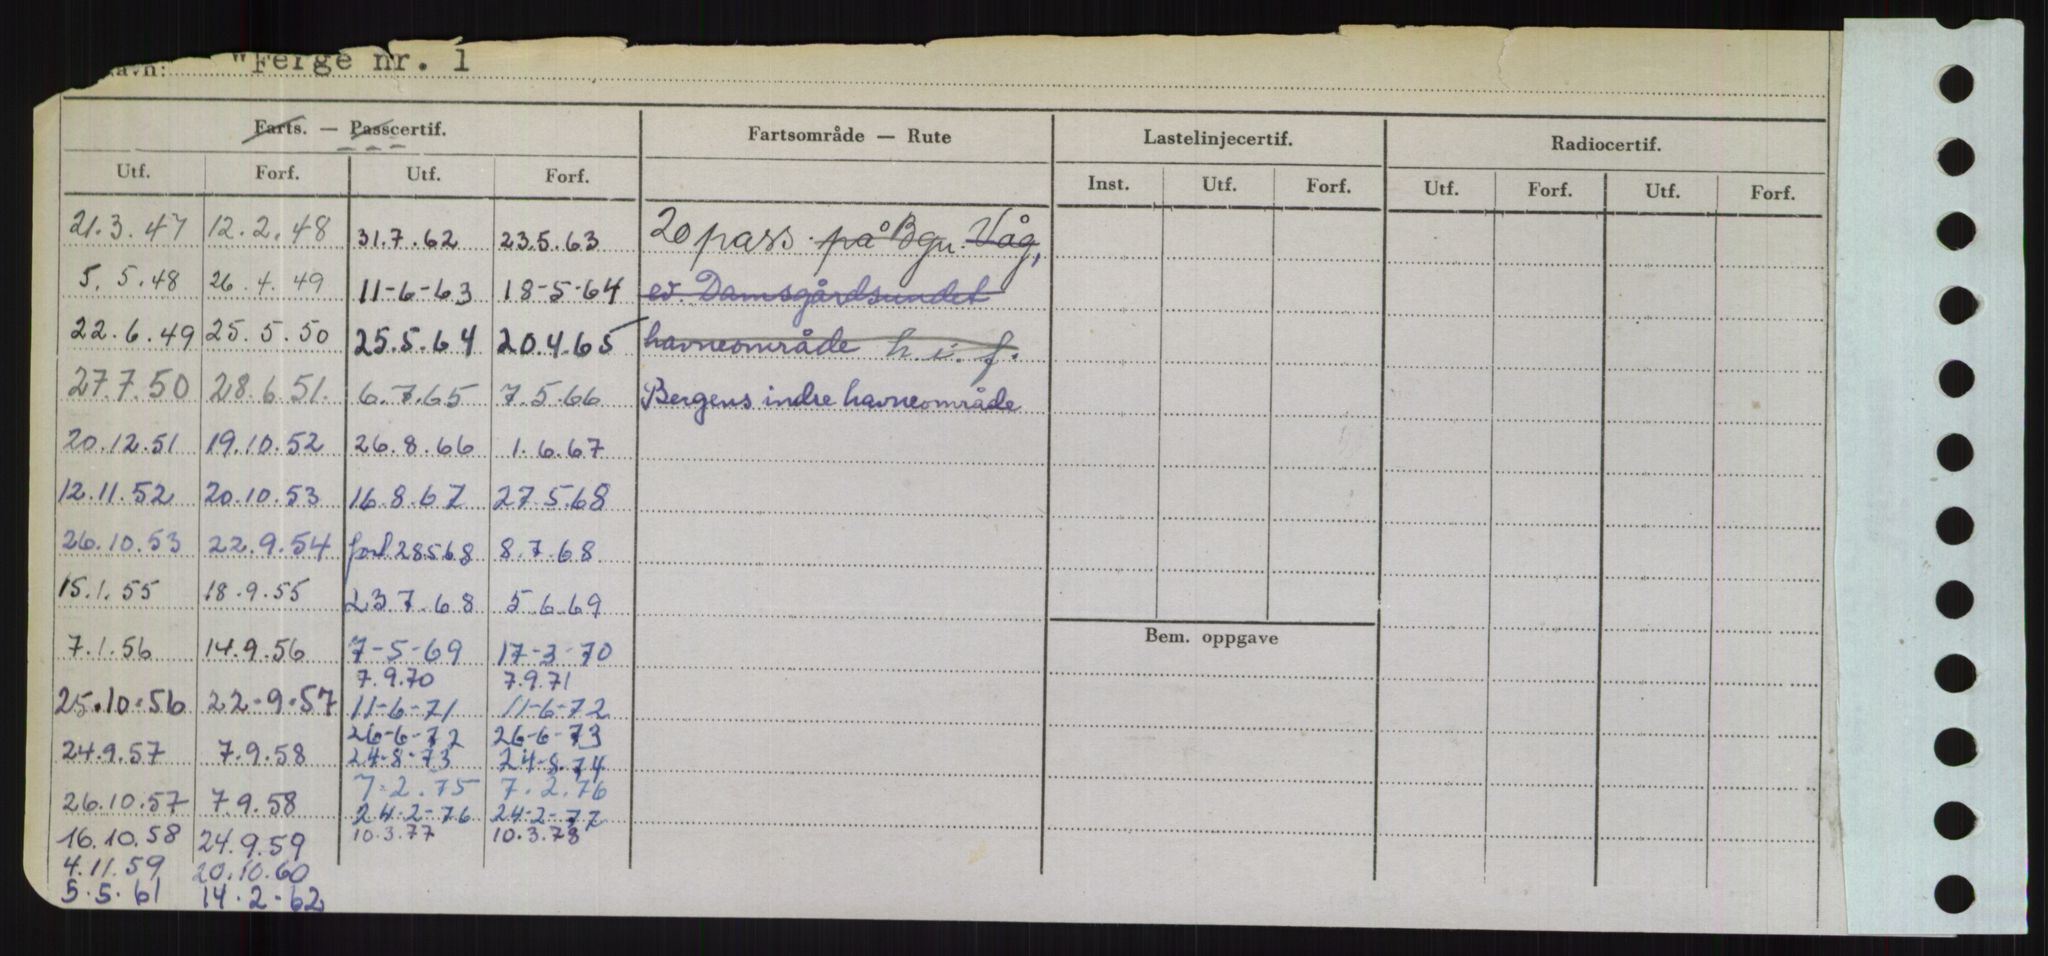 Navn: "Ferge nr. 1
Farts. — Passcertif. Fartsområde — Rute Lastelinjecertif. Radiocertif.
Utf. Forf. Utf. Forf. Inst. Utf. Forf. Utf. Forf. Utf. Forf.
21.3.47 12.2.48 31.7.62 23.5.63 20 pass. på Bgn. Våg,
5.5.48 26.4.49 11-6-63 18-5-64 ev. Damsgårdsundet
22.6.49 25.5.50 25.5.64 20.4.65 havneområde h.i.f.
27.7.50 28.6.51. 6.7.65 7.5.66 Bergens indre havneområde
20.12.51 19.10.52 26.8.66 1.6.67
12.11.52 20.10.53 16.8.67 27.5.68
26.10.53 22.9.54 forl 28568 8.7.68
15.1.55 18.9.55 23.7.68 5.6.69
Bem. oppgave
7.1.56 14.9.56 7-5-69 17-3-70
7.9.70 7.9.71
25.10.56 22-9-57 11-6-71 11-6-72
26-6-72 26-6-73
24.9.57 7.9.58 24-8-73 24-8.74
7.2.75 7.2.76
26.10.57 7.9.58 24-2-76 24-2-77
16.10.58 24.9.59 10.3.77 10.3.78
4.11.59 20.10.60
5.5.61 14.2.62